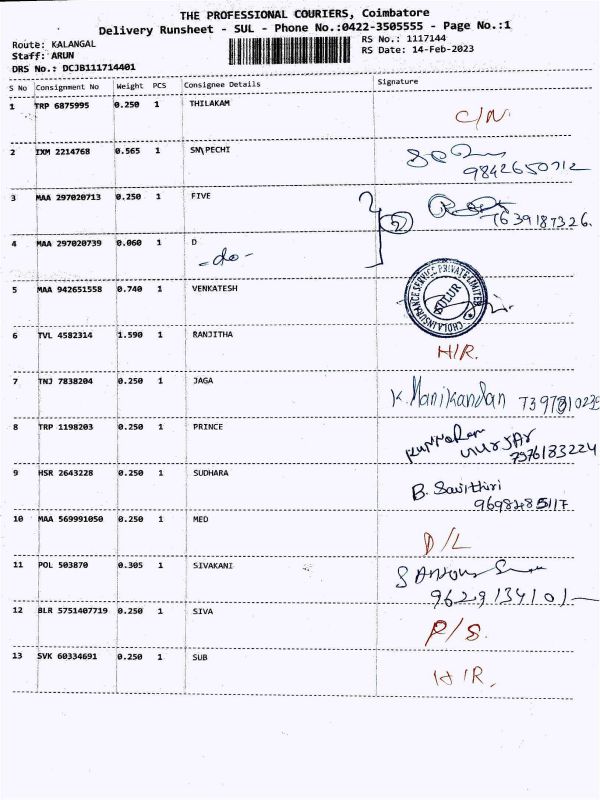 THE PROFESSIONAL COURIERS, Coimbatore
Delivery Runsheet - SUL - Phone No.:0422-3505555 - Page No.:1
Route: KALANGAL
RS No.: 1117144
Staff: ARUN
RS Date: 14-Feb-2023
DRS No.: DCJB111714401
S No Consignment No Weight PCS Consignee Details Signature
1 TRP 6875995 0.250 1 THILAKAM
C/N.
2 IXM 2214768 0.565 1 SN\PECHI
9842650712
3 MAA 297020713 0.250 1 FIVE
7639187326.
4 MAA 297020739 0.060 1 D
-do-
5 MAA 942651558 0.740 1 VENKATESH
CHOLA INSURANCE SERVICE PRIVATE LIMITED
SULUR
6 TVL 4582314 1.590 1 RANJITHA
H/R.
7 TNJ 7838204 0.250 1 JAGA
K. Manikandan
8 TRP 1198203 0.250 1 PRINCE
7376183224
9 HSR 2643228 0.250 1 SUDHARA
B. Savithiri
9698485117
10 MAA 569991050 0.250 1 MED
D/L
11 POL 503870 0.305 1 SIVAKANI
9629134101
12 BLR 5751407719 0.250 1 SIVA
P/S.
13 SVK 60334691 0.250 1 SUB
H/R.